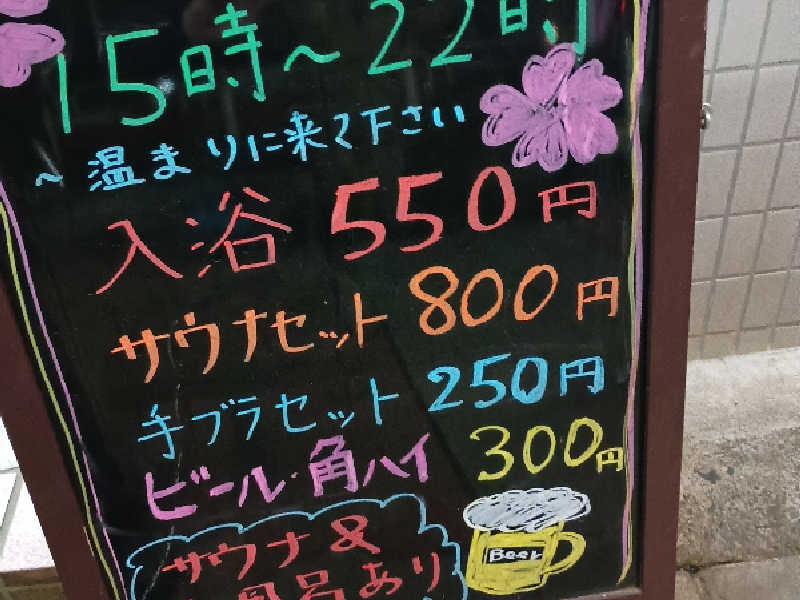 15時～22時
～温まりに来て下さい
入浴 550円
サウナセット 800円
手ブラセット 250円
ビール・角ハイ 300円
サウナ&
風呂あり
Beer